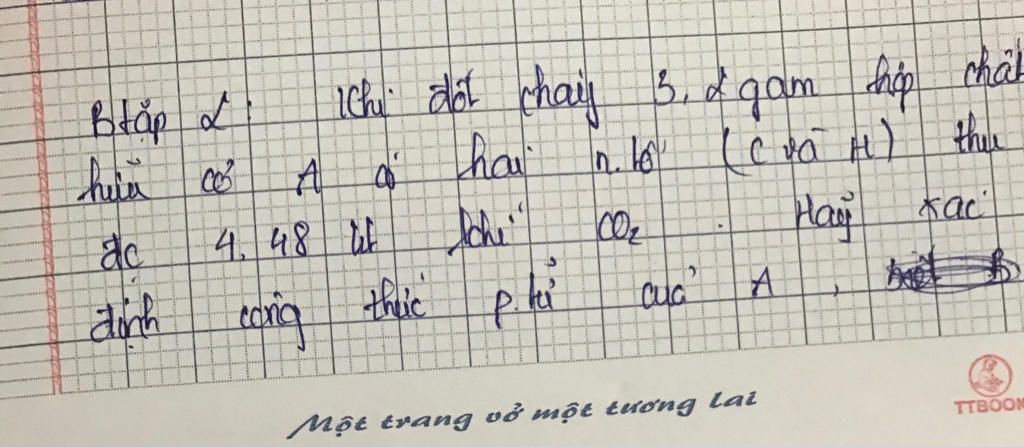 Btập 2: Khi đốt cháy 3,2 gam hợp chất
hữu cơ A có hai n.tố (C và H) thu
đc 4,48 lít khí CO₂. Hãy xác
định công thức p.tử của A,
Một trang vở một tương lai
TTBOOK